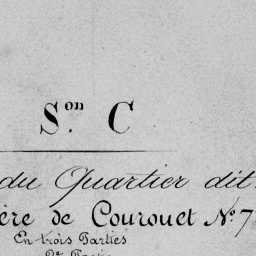 Son. C
du Quartier dit
ère de Courouet No. 7
En trois Parties